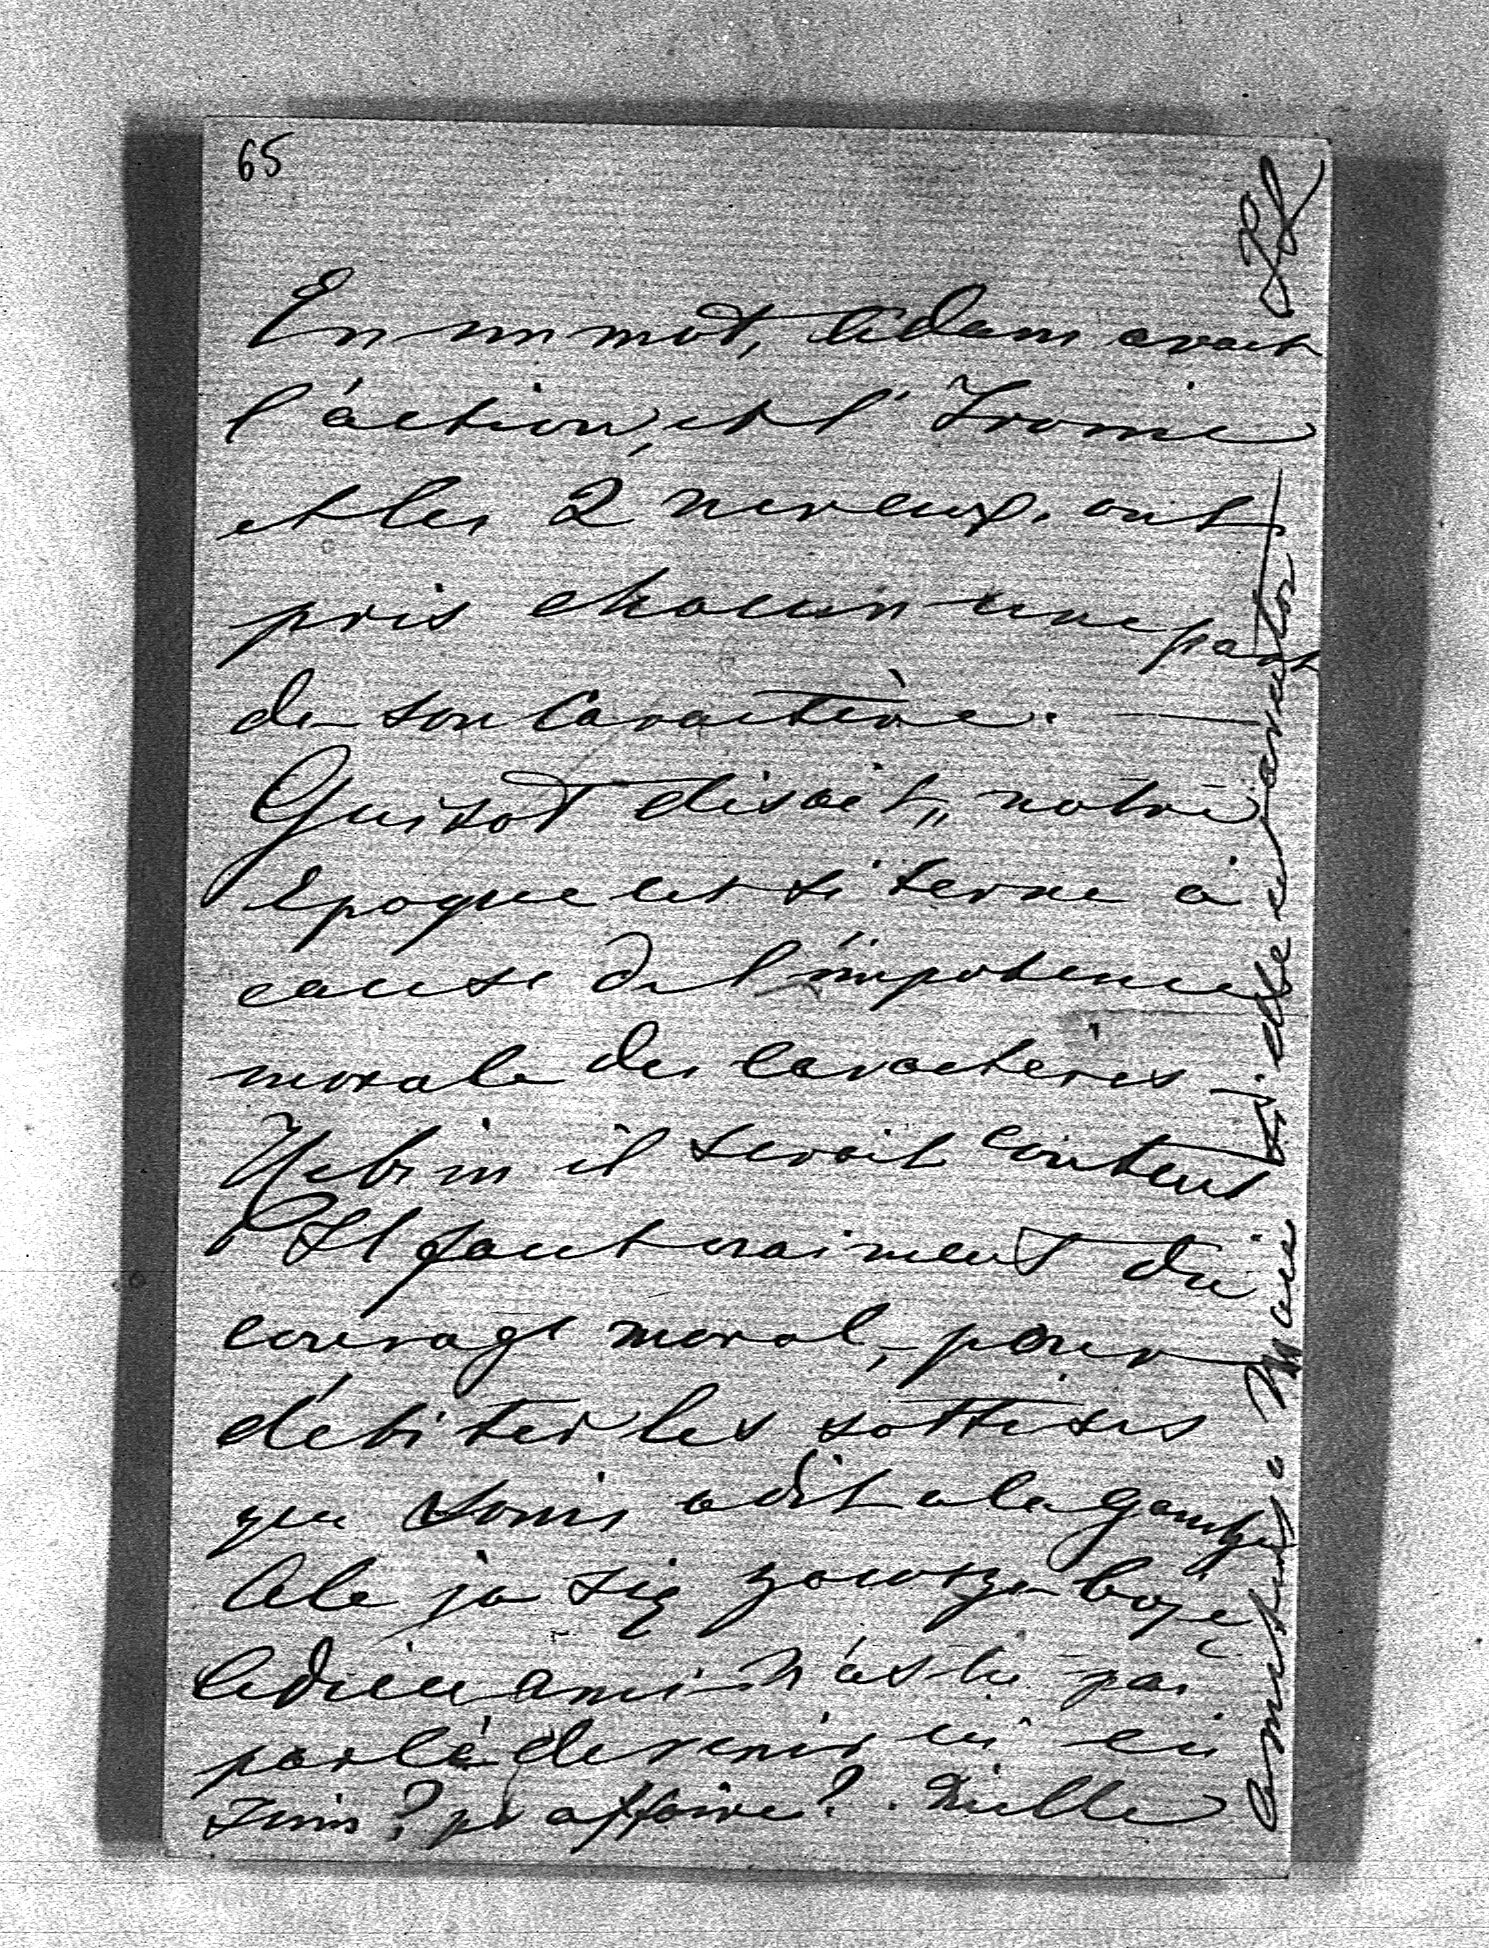 65
En un mot, Adam avait
l'action, et l'Ironie
et les 2 neveux, ont
pris chacun une part
de son Caractère. —
Guizot disait „ notre
époque est si terne à
cause de l'impotence
morale des caractères —
il serait content
Il faut vraiment du
courage moral, pour
débiter les sottises
que Louis a dit a la
Ale ja się zawsze boję
Adieu ami N'as tu pas
parlé de venir ici en
Juin? pr affaire? Mille
amitiés a Marie si elle est avec toi —